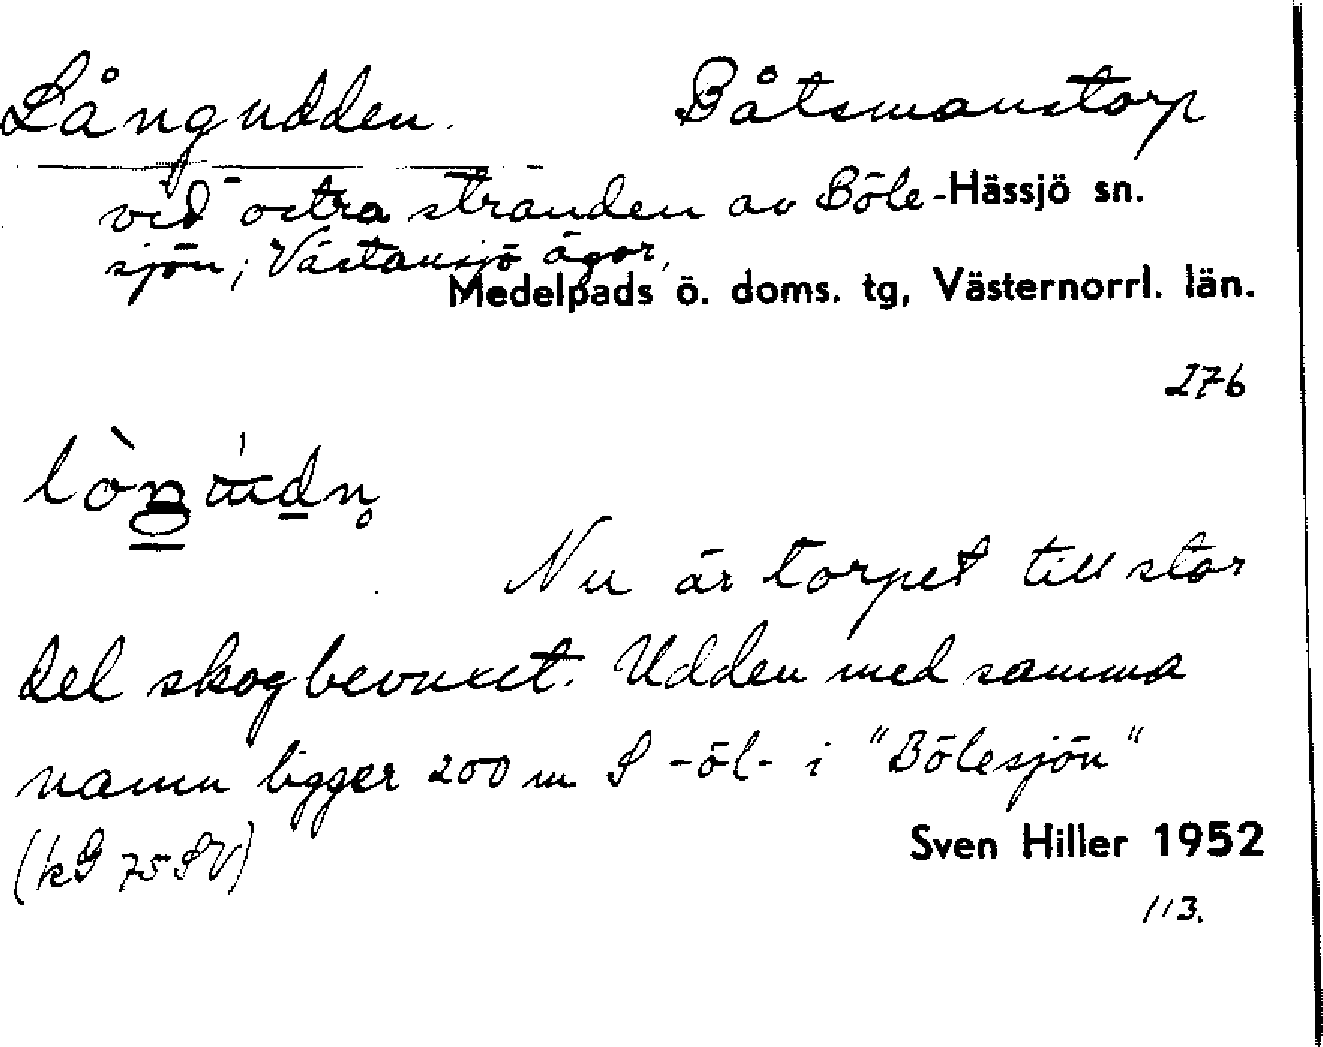 Långudden. Båtsmanstorp
vid östra stranden av Böle- Hässjö sn.
sjön; Västansjö ägor,
Medelpads ö. doms. tg, Västernorrl. län.
276
Nu är torpet till stor
del skogbevuxet. Udden med samma
namn ligger 200 m S -öl- i "Bölesjön"
(kG 75 SV)
Sven Hiller 1952
113.